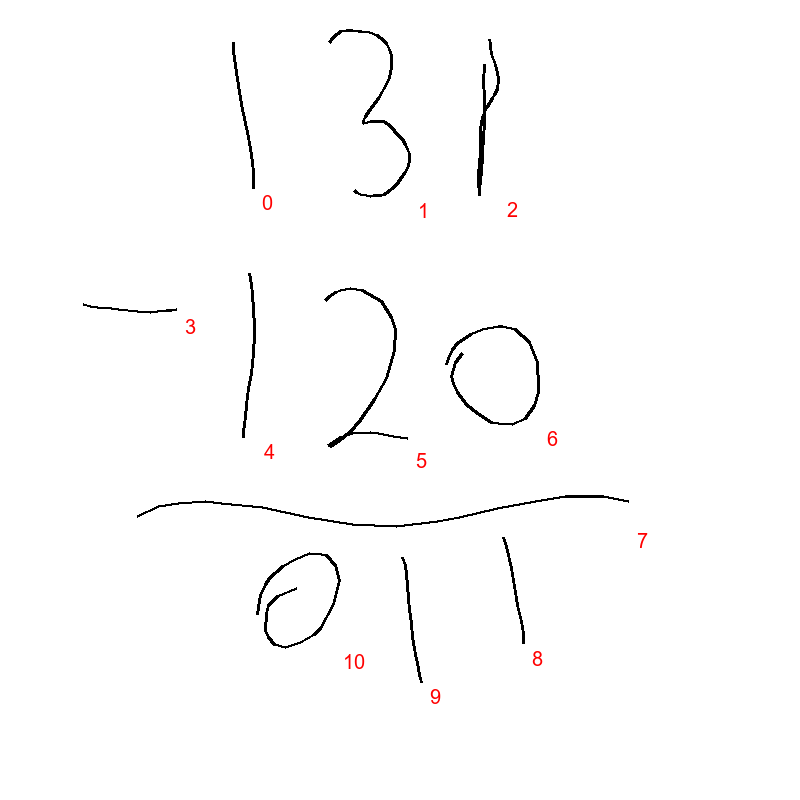 131
0 1 2
- 120
3
4 5 6
7
011
10 9 8